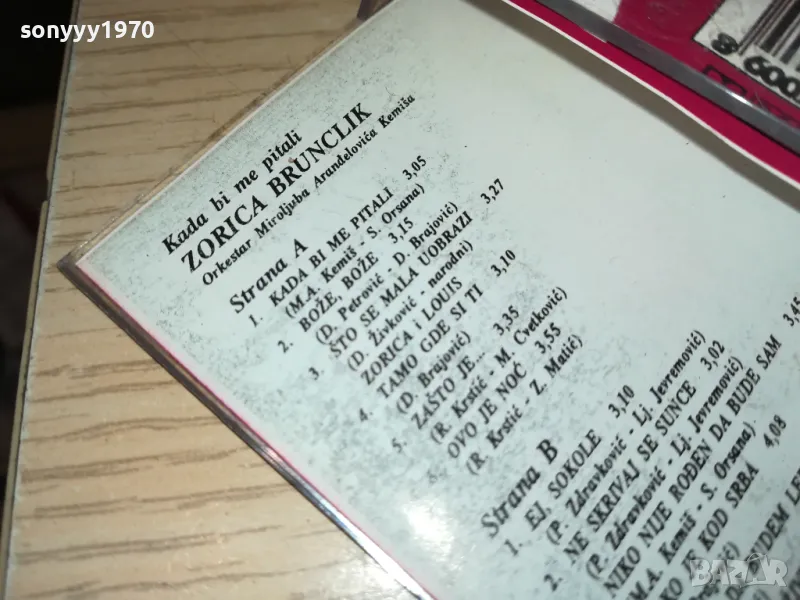 sonyyy1970
Kada bi me pitali
ZORICA BRUNCLIK
Orkestar Miroljuba Aranđelovića Kemiša
Strana A
1. KADA BI ME PITALI 3,05
(M.A. Kemiš - S. Orsana)
2. BOŽE, BOŽE 3,15
(D. Petrović - D. Brajović)
3. ŠTO SE MALA UOBRAZI 3,27
(D. Živković - narodni)
ZORICA i LOUIS
4. TAMO GDE SI TI 3,10
(D. Brajović)
5. ZAŠTO JE... 3,35
(R. Krstić - M. Cvetković)
OVO JE NOĆ 3,55
(R. Krstić - Z. Matić)
Strana B
1. EJ, SOKOLE 3,10
(P. Zdravković - Lj. Jevremović)
2. NE SKRIVAJ SE SUNCE 3,02
(P. Zdravković - Lj. Jevremović)
NIKO NIJE ROĐEN DA BUDE SAM 3,45
M.A. Kemiš - S. Orsana)
KOD SRBA 4,08
8 600
BAZAR